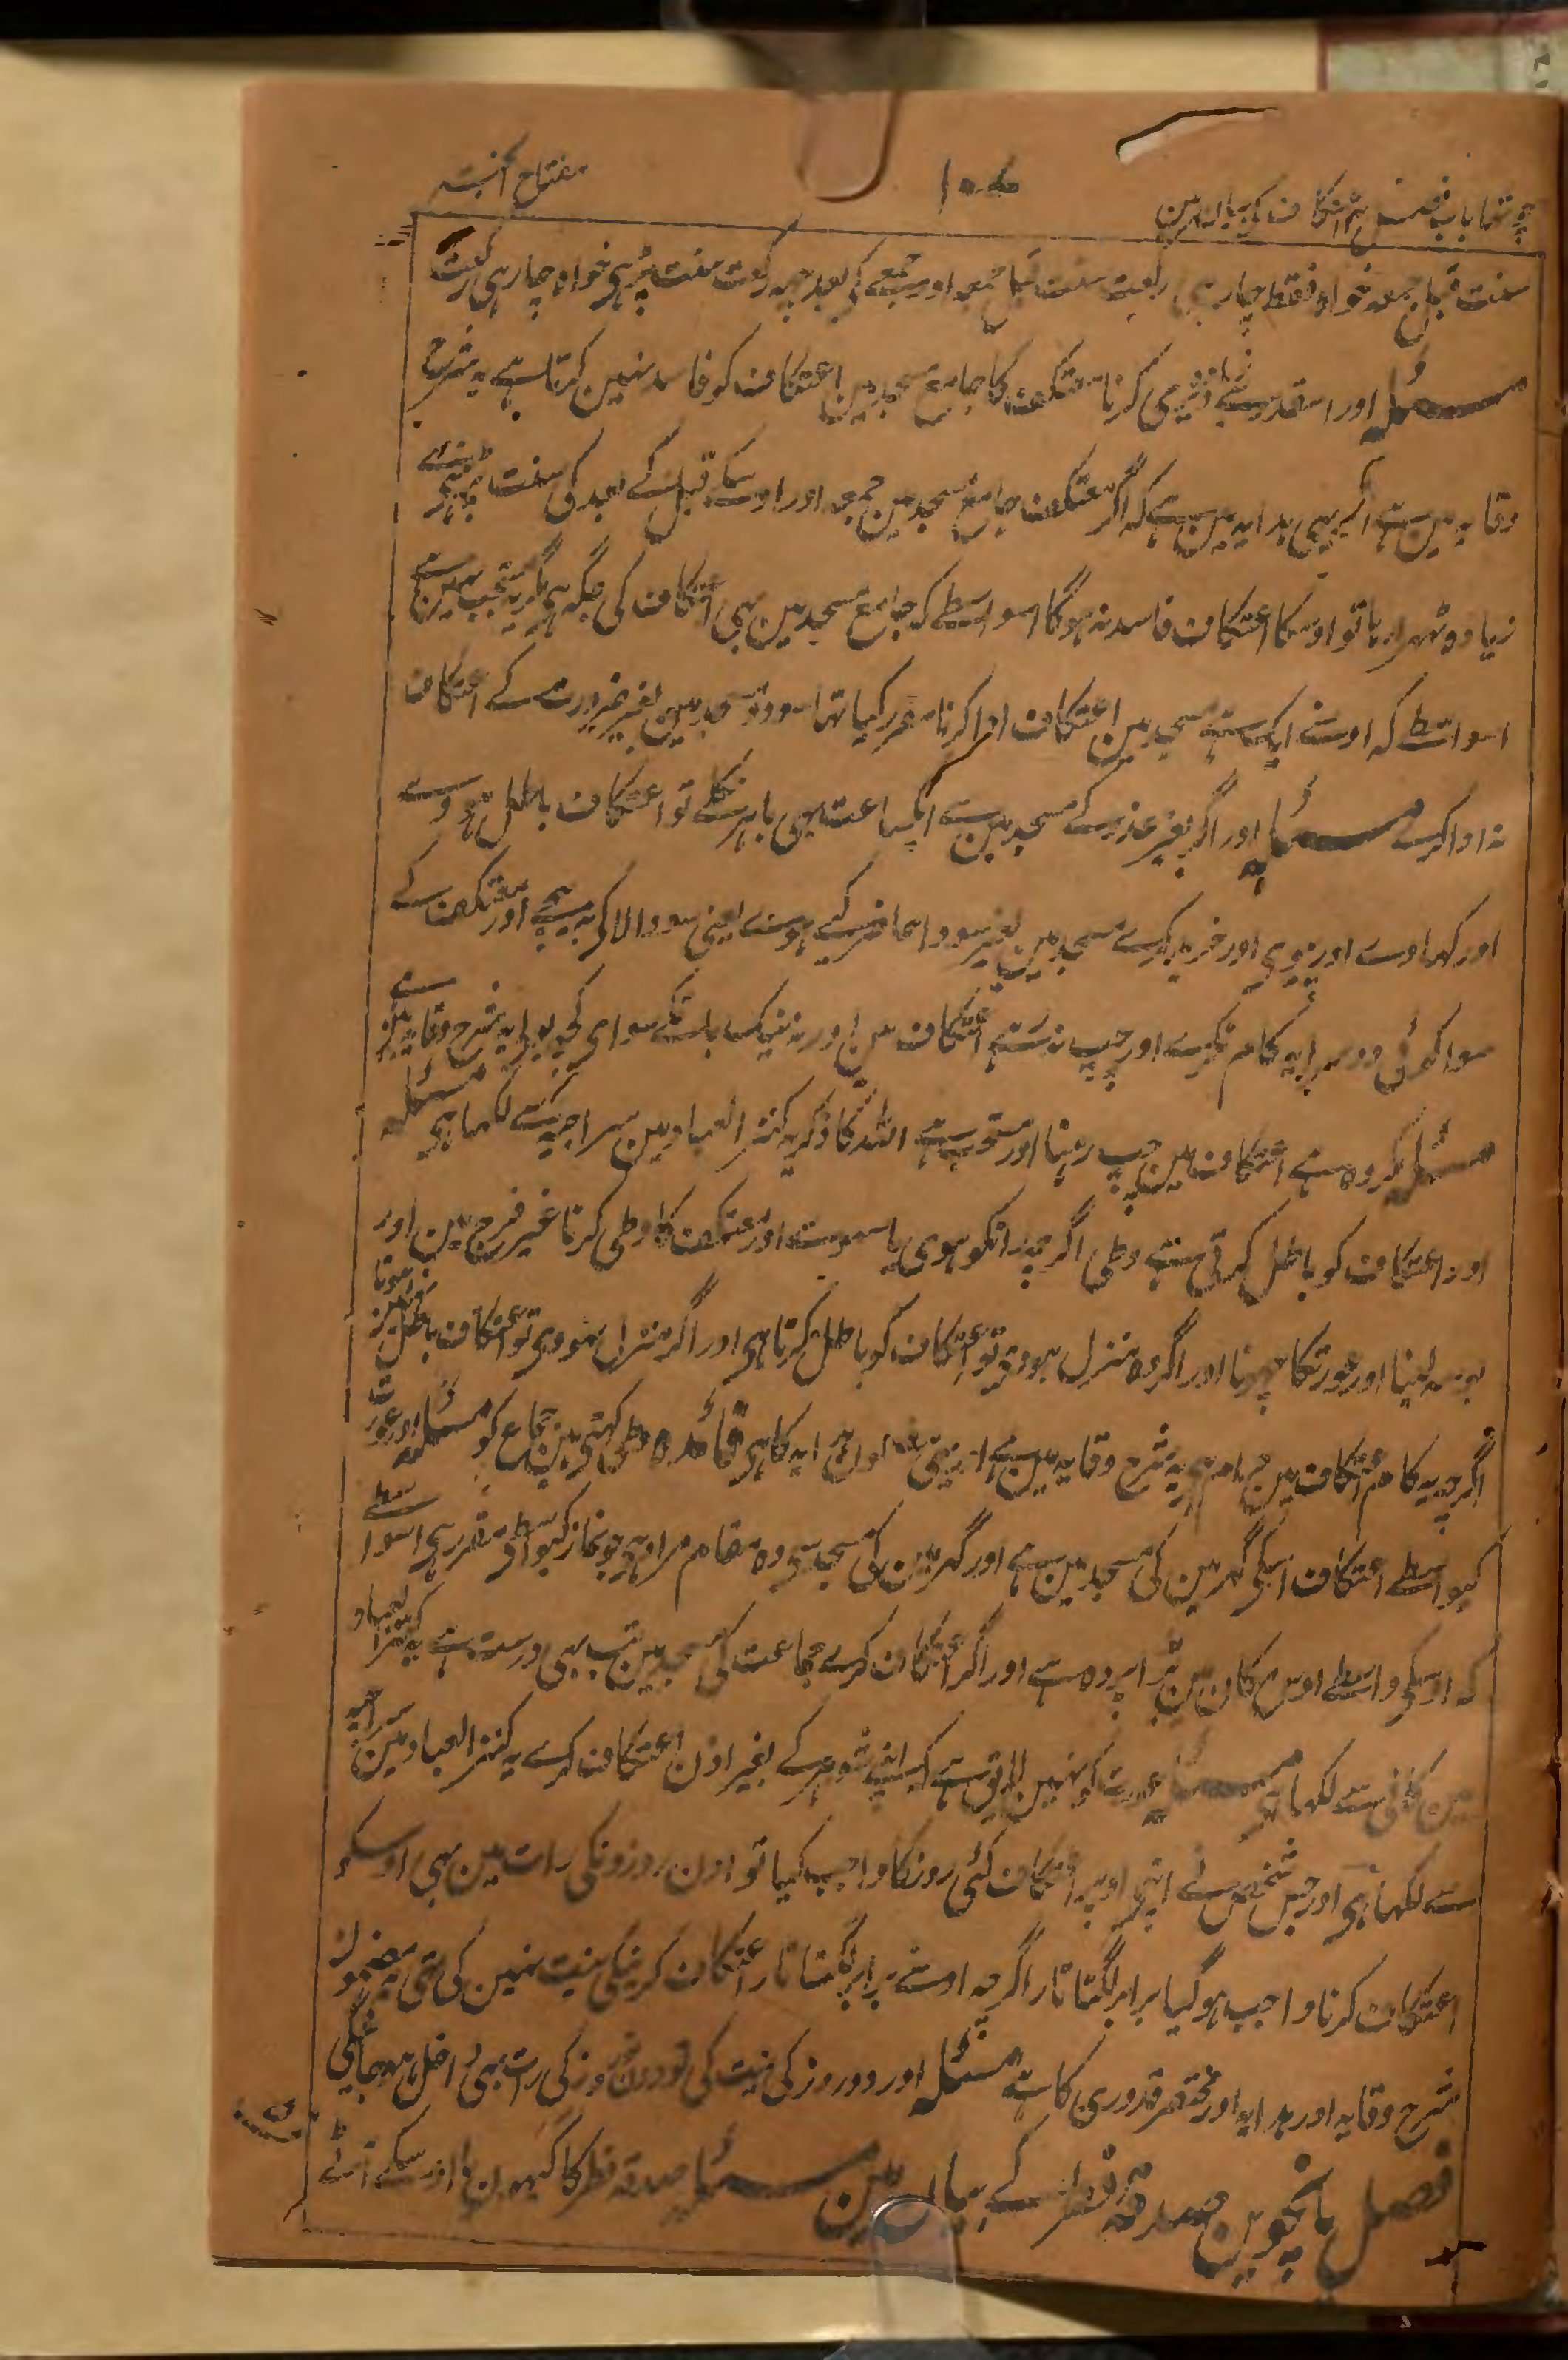 چوتھا باب فصل اعتکاف کی بیان مین
۱۰۷
مفتاح الجنۃ
سنت قبل جمعہ خواہ فقط چار ہی رکعت سنت قبل جمعہ اور جمعے کی بعد چہ رکعت سنت پڑہی خواہ چار ہی رکعت
مسئلہ اور اسقدر سے زیادہ دیری کرنا معتکف کا جامع مسجد مین اعتکاف کو فاسد نہین کرتا ہے یہ شرح
وقایہ مین ہے اور یہی ہدایہ مین ہے کہ اگر معتکف جامع مسجد مین جمعہ اور اوسکے قبل کے بعد کی سنت پڑہنے سے
زیادہ ٹہرا رہا تو اوسکا اعتکاف فاسد نہ ہوگا اسواسطے کہ جامع مسجد مین بہی اعتکاف کی جگہ ہی مگر یہ مستحب نہین ہے
اسواسطے کہ اوسنے ایک ہے مسجد مین اعتکاف ادا کرنا مقرر کیا تہا سو دو مسجد مین بغیر ضرورت کے اعتکاف
نہ ادا کرے مسئلہ اور اگر بغیر عذر کے مسجد مین سے ایک ساعت بہی باہر نکلے تو اعتکاف باطل ہووے
اور کہاوے اور پیوی اور خرید کرے مسجد مین بغیر سودا حاضر کیے ہوے یعنی سودا لا کر نہ بیچے اور معتکف کے
سوا کوئی دوسرا یہ کام نکرے اور چپ نرہے اعتکاف مین اور نہ نیک بات کے سوای کچہ بولے یہ شرح وقایہ مین ہے
مسئلہ مکروہ ہے اعتکاف مین چپ رہنا اور مستحب ہے اللہ کا ذکر یہ کنز العباد مین سراجیہ سے لکہا ہی مسئلہ
اور اعتکاف کو باطل کرتی ہے وطی اگرچہ رات کو ہووی یا سہو سے اور معتکف کا وطی کرنا غیر فرج مین اور
بوسہ لینا اور عورت کا چہونا اور اگر وہ منزل ہووی تو اعتکاف کو باطل کرتا ہی اور اگر منزل نہووی تو اعتکاف باطل نہین ہوتا
اگرچہ یہ کام اعتکاف مین حرام ہی یہ شرح وقایہ مین ہے اور یہی قول ہدایہ کا ہی فائدہ وطی کہتی ہین جماع کو مسئلہ اور عورت
کیواسطے اعتکاف اسکی گہر مین کی مسجد مین ہے اور گہر مین کی مسجد سے وہ مقام مراد ہی جو نماز کیواسطے مقرر ہی اسواسطے
کہ اوسکی واسطے اوس مکان مین بڑا پردہ ہے اور اگر اعتکاف کرے جماعت کی مسجد مین تب بہی درست ہے یہ کنز العباد
مین کافی سے لکہا ہی مسئلہ عورت کو نہین لایق ہے کہ اپنے شوہر کے بغیر اذن اعتکاف کرے یہ کنز العباد مین سراجیہ
سے لکہا ہی اور جس شخص نے اپنی اوپر اعتکاف کئی روز کا واجب کیا تو اون روزونکی رات مین بہی اوسکو
اعتکاف کرنا واجب ہو گیا برابر لگتا تار اگرچہ اوسنے برابر لگتا تار اعتکاف کرنیکی نیت نہین کی تہی یہ مضمون
شرح وقایہ اور ہدایہ اور مختصر قدوری کا ہے مسئلہ اور دو روز کی نیت کی تو دونون روز کی رات بہی داخل ہو جائیگی
فصل پانچوین صدقہ فطر کے بیان مین مسئلہ صدقہ فطر کا گیہون یا اوسکے آٹے